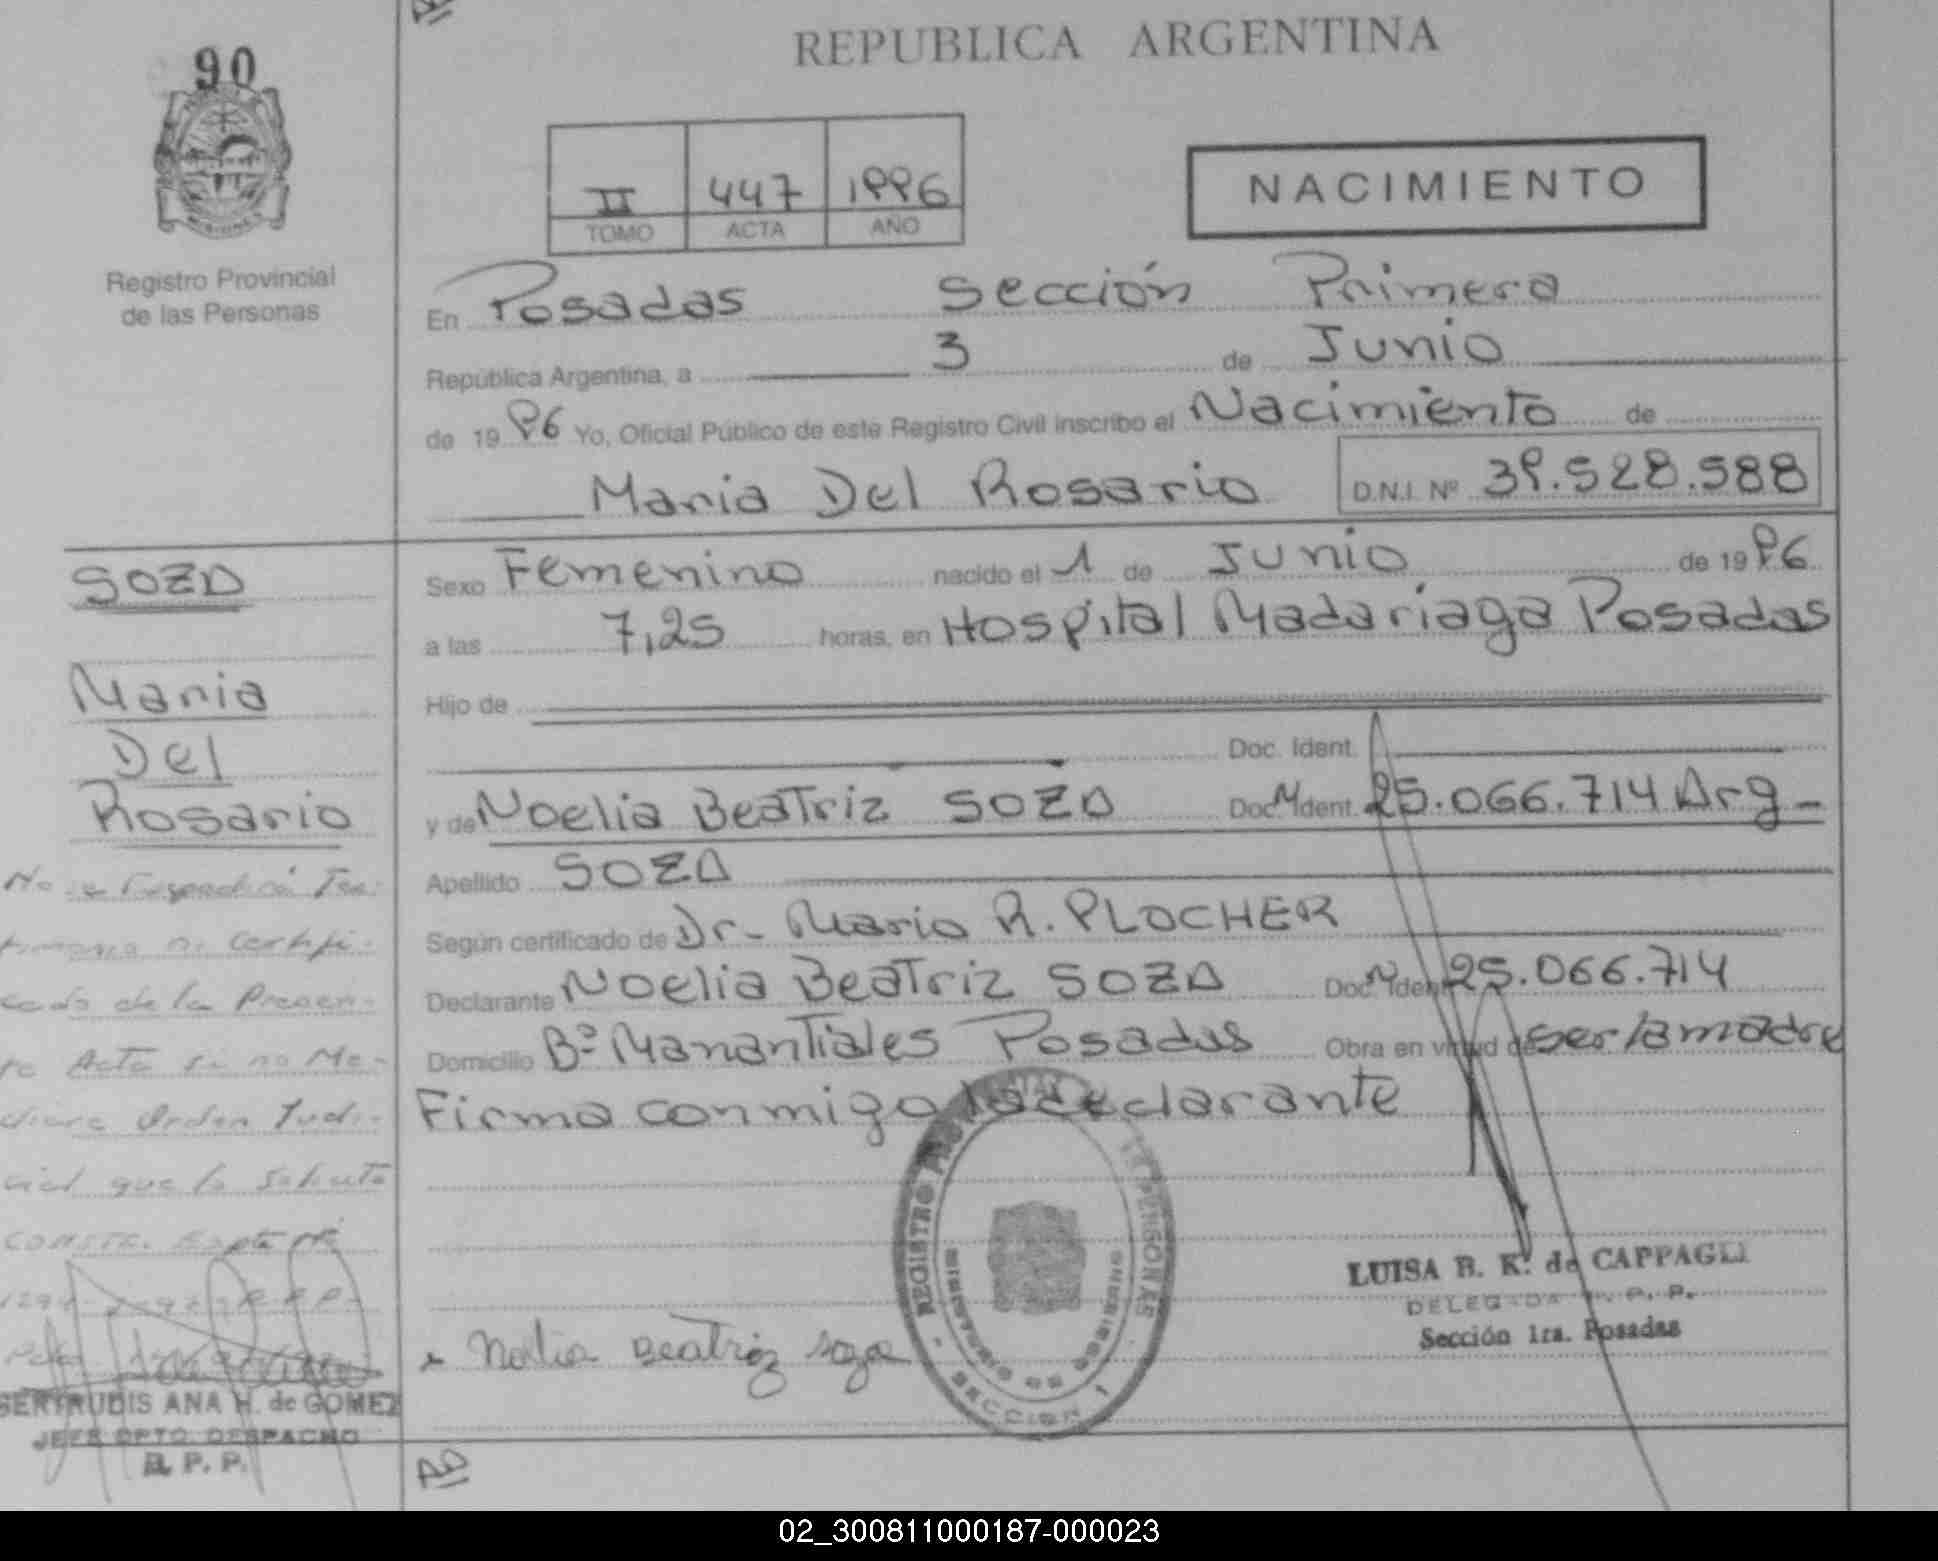 90
REPUBLICA ARGENTINA
II 447 1996
TOMO ACTA AÑO
NACIMIENTO
Registro Provincial
de las Personas
En Posadas Sección Primera
República Argentina, a 3 de Junio
de 19 96 Yo, Oficial Público de este Registro Civil inscribo el Nacimiento de
Maria Del Rosario D.N.I. Nº 39.528.588
Sexo Femenino nacido el 1 de Junio de 19 96
a las 7,25 horas, en Hospital Madariaga Posadas
Hijo de
Doc. Ident.
y de Noelia Beatriz SOZA Doc. Ident. 25.066.714 Arg -
Apellido SOZA
Según certificado de Dr- Mario R. PLOCHER
Declarante Noelia Beatriz SOZA Doc. Ident. 25.066.714
Domicilio Bº Manantiales Posadas Obra en virtud de ser la madre
Firma conmigo la declarante
SOZA
Maria
Del
Rosario
No se Expedirá Tes-
timonio ni Certifi-
cado de la Presen-
te Acta si no Me-
diare Orden Judi-
cial que lo Solicite
CONSTE. Expte Nº
GERTRUDIS ANA H. de GOMEZ
JEFE DPTO. DESPACHO
R. P. P.
Noelia Beatriz Soza
REGISTRO PERSONAS
SECCION 1
LUISA B. K. de CAPPAGLI
DELEGADA R. P. P.
Sección 1ra. Posadas
02_300811000187-000023